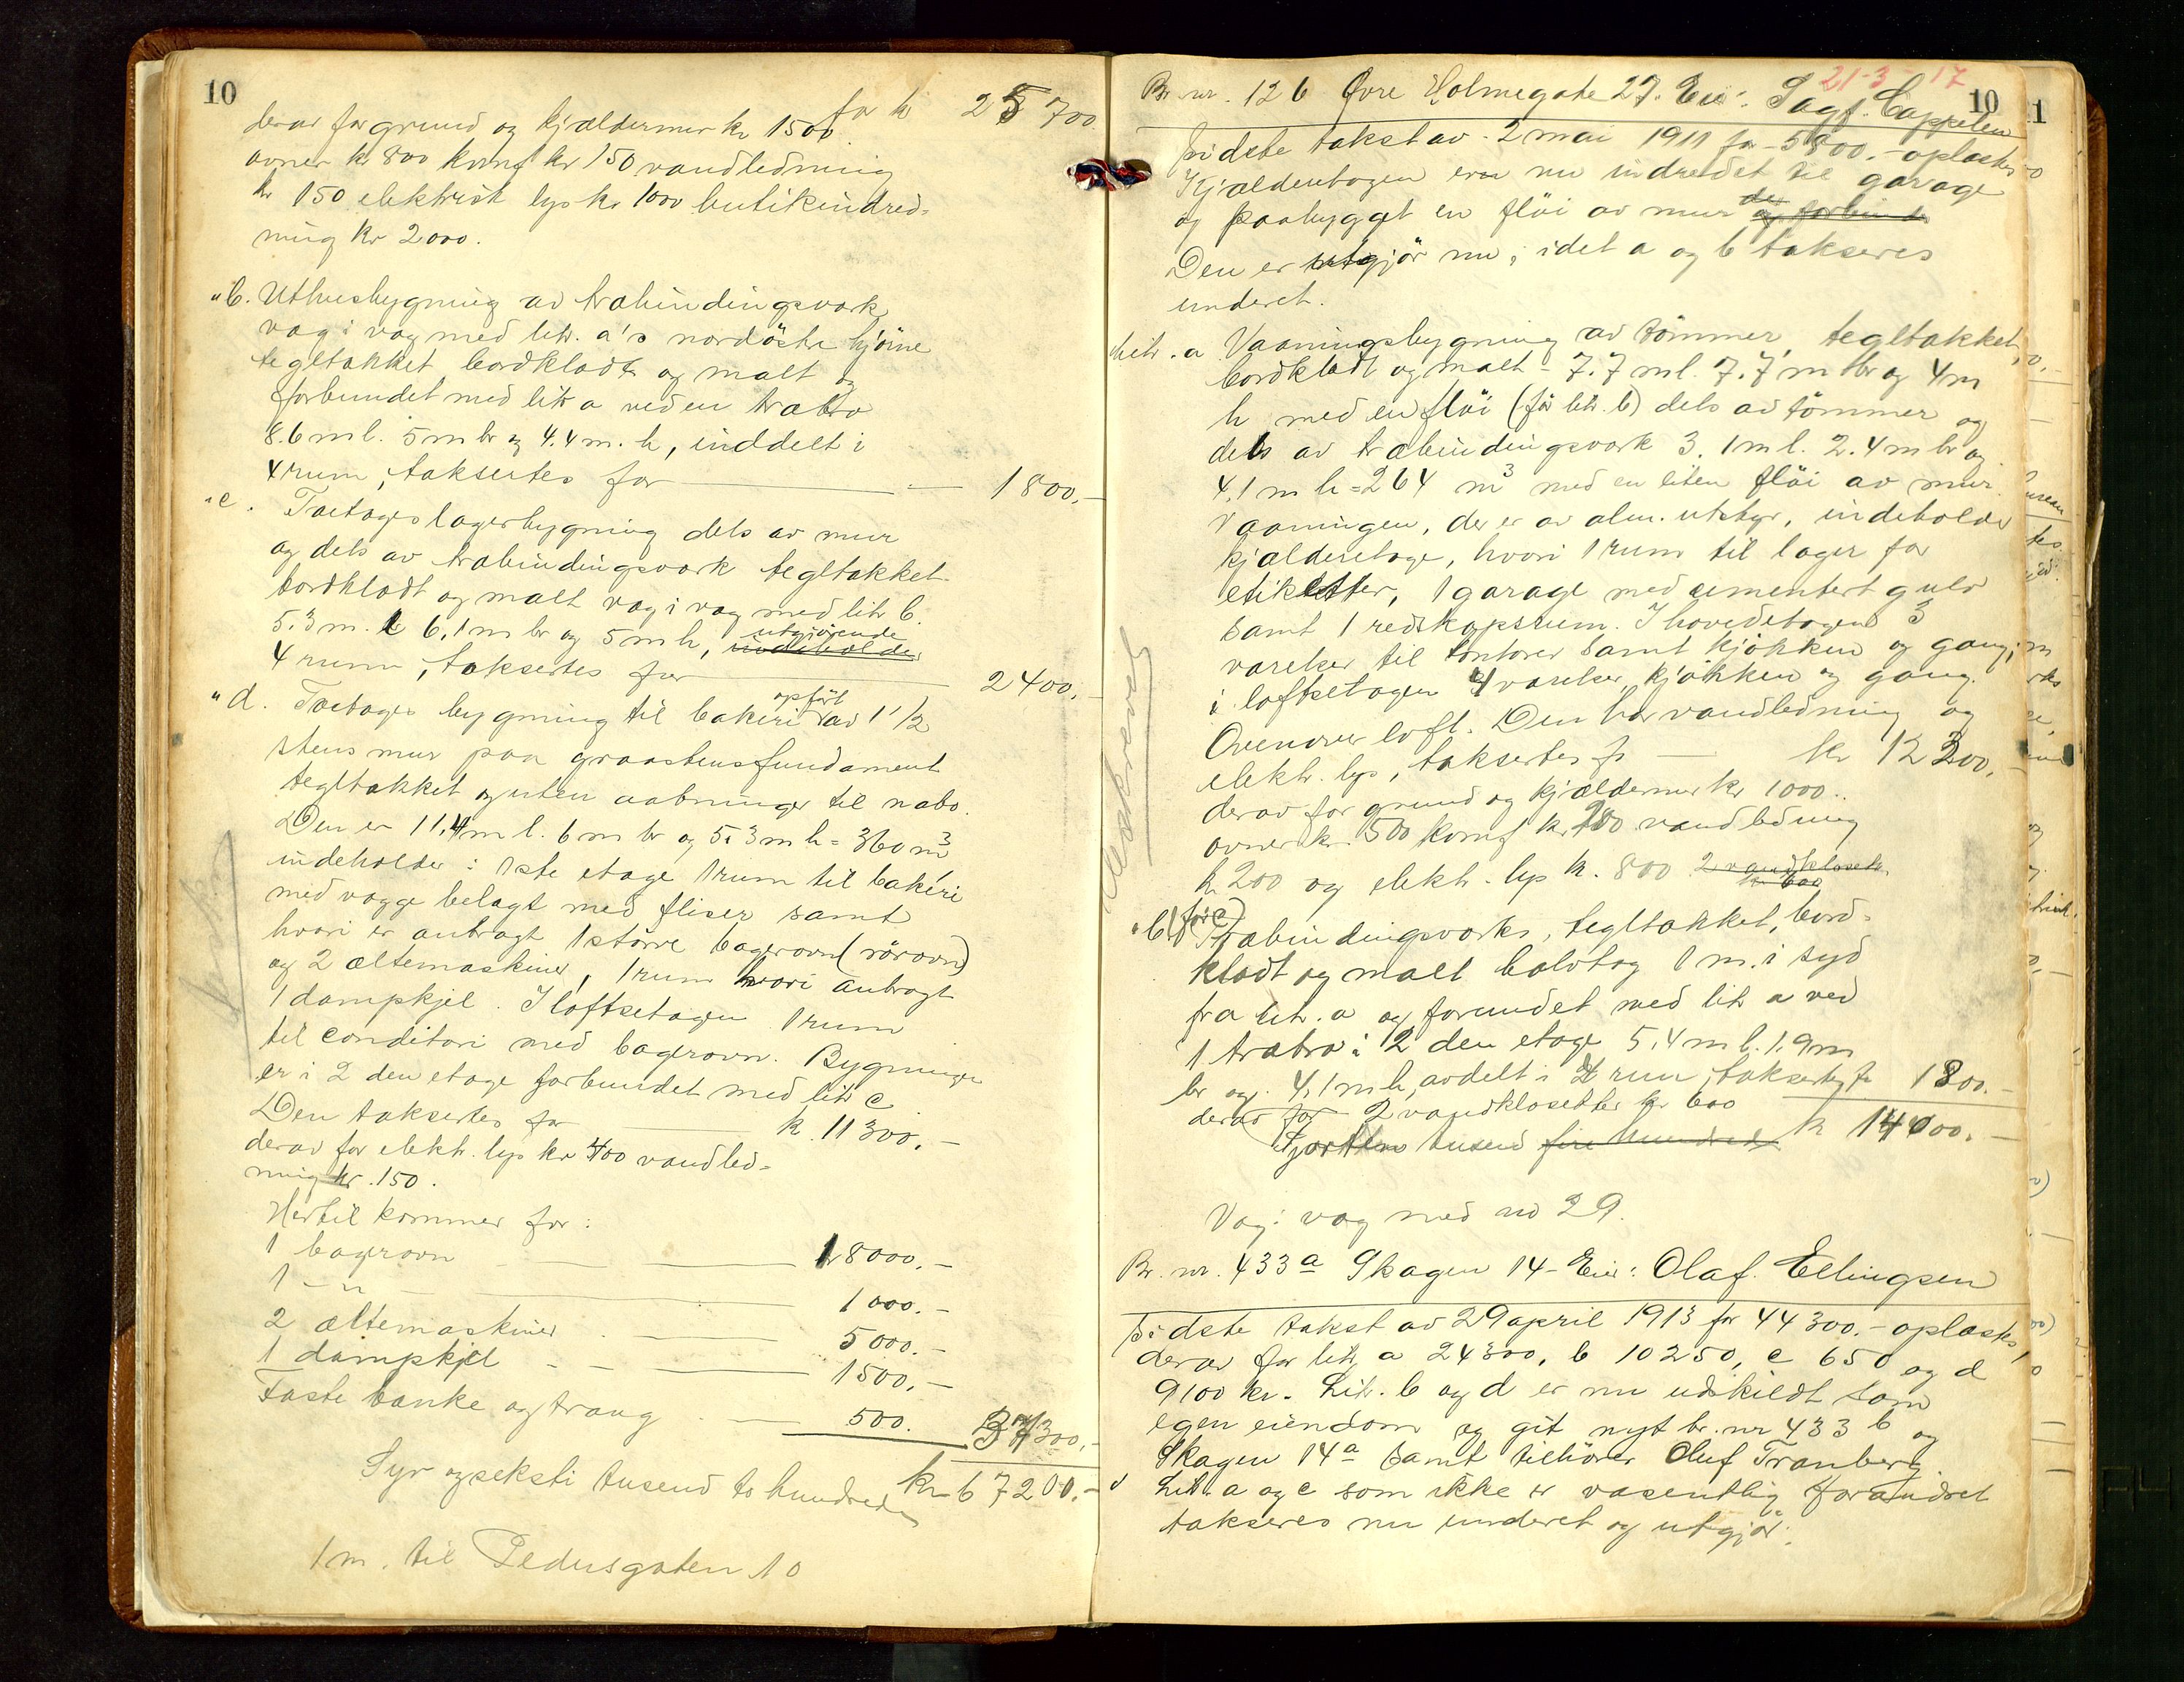 10
for kr 25700
derav for grund og kjældermur kr 1500
ovner kr 800 komf kr 150 vandledning
kr 150 elektrisk lys kr 1000 butikindred-
ning kr 2000.
"b. Uthusbygning av træbindingsverk
væg i væg med litr. a's nordöstre hjörne
tegltækket bordklædt og malt og
forbundet med litr a ved en træbro
8.6 m l. 5 m br og 4.4 m. h, inddelt i
4 rum, takseres for — 1800,-
"c. Toetages lagerbygning dels av mur
og dels av træbindingsverk tegltækket
bordklædt og malt væg i væg med litr b.
5.3 m. l 6,1 m br og 5 m h, utgjörende indeholder
4 rum, takseres for — 2400,-
"d. Toetages bygning til bakeri opfört av 1 1/2
stens mur paa graastensfundament
tegltækket og uten aabninger til nabo.
Den er 11,4 m l. 6 m br og 5.3 m h = 360 m³
indeholder: 1ste etage 1 rum til bakeri
med vægge belagt med fliser samt
hvori er anbragt 1 större bagerovn (rörovn)
og 2 æltemaskiner, 1 rum hvori anbragt
1 dampkjel. I loftsetagen 1 rum
til conditori med bagerovn. Bygningen
er i 2 den etage forbundet med litr c
Den takseres for — kr. 11300,-
derav for elektr. lys kr 400 vandled-
ning kr. 150.
Hertil kommer for:
1 bagerovn — 18000.-
1 - " - — 1000.-
2 æltemaskiner — 5000.-
1 dampkjel — 1500,-
Faste bænke og traug — 500. 37300,-
Syv og seksti tusend to hundrede kr 67200.-
1 m. til Pedersgaten 10
21-3-17
10
Br. nr. 126 Øvre Holmegate 27. Eier: Sagf. Cappelen
Sidste takst av 2 mai 1911 for 5800.- oplæstes
Kjælderetagen er nu indredet til garage
og paabygget en flöi av mur des og forbindes
Den er utgjör nu, idet a og b takseres
underet.
Litr. a Vaaningsbygning av tömmer, tegltækket,
bordklædt og malt - 7.7 m l. 7.7 m br og 4 m
h med en flöi (för litr. b) dels av tömmer og
dels av træbindingsverk 3.1 m l. 2.4 m br og
4,1 m h = 264 m³ med en liten flöi av mur.
Vaaningen, der er av alm. utstyr, indeholder
kjælderetage, hvori 1 rum til lager for
etiketter, 1 garage med cementert gulv
samt 1 redskapsrum. I hovedetagen 3
værelser til kontorer samt kjökken og gang,
i loftsetagen 4 værelser, kjökken og gang.
Ovenover loft. Den har vandledning og
elektr. lys, takseres fr — kr 12200,-
derav for grund og kjældermur kr 1000.
ovner kr. 500 komf kr 200 vandledning
kr 200 og elektr. lys kr. 800 2 vandklosetter kr 600
"b (för c) Træbindingsverks, tegltækket, bord-
klædt og malt halvtag 1 m. i syd
fra litr. a og forundet med litr a ved
1 træbro i 2 den etage 5,4 m l. 1,9 m
br og 4,1 m h, avdelt i 4 rum, takseres fr 1800.-
derav for 2 vandklosetter kr 600
Fjorten tusend fire hundrede kr 14000.-
Væg i væg med no 29.
Br. nr. 433 a Skagen 14 - Eier: Olaf Ellingsen
Sidste takst av 29 april 1913 for 44300.- oplæstes
derav for litr. a 24300, b 10250, c 650 og d
9100 kr. Litr. b og d er nu utskildt som
egen eiendom og git nyt br. nr 433 b og
Skagen 14 a samt tilhörer Oluf Tranberg.
Litr. a og c som ikke er væsentlig forandret
takseres nu underet og utgjör: